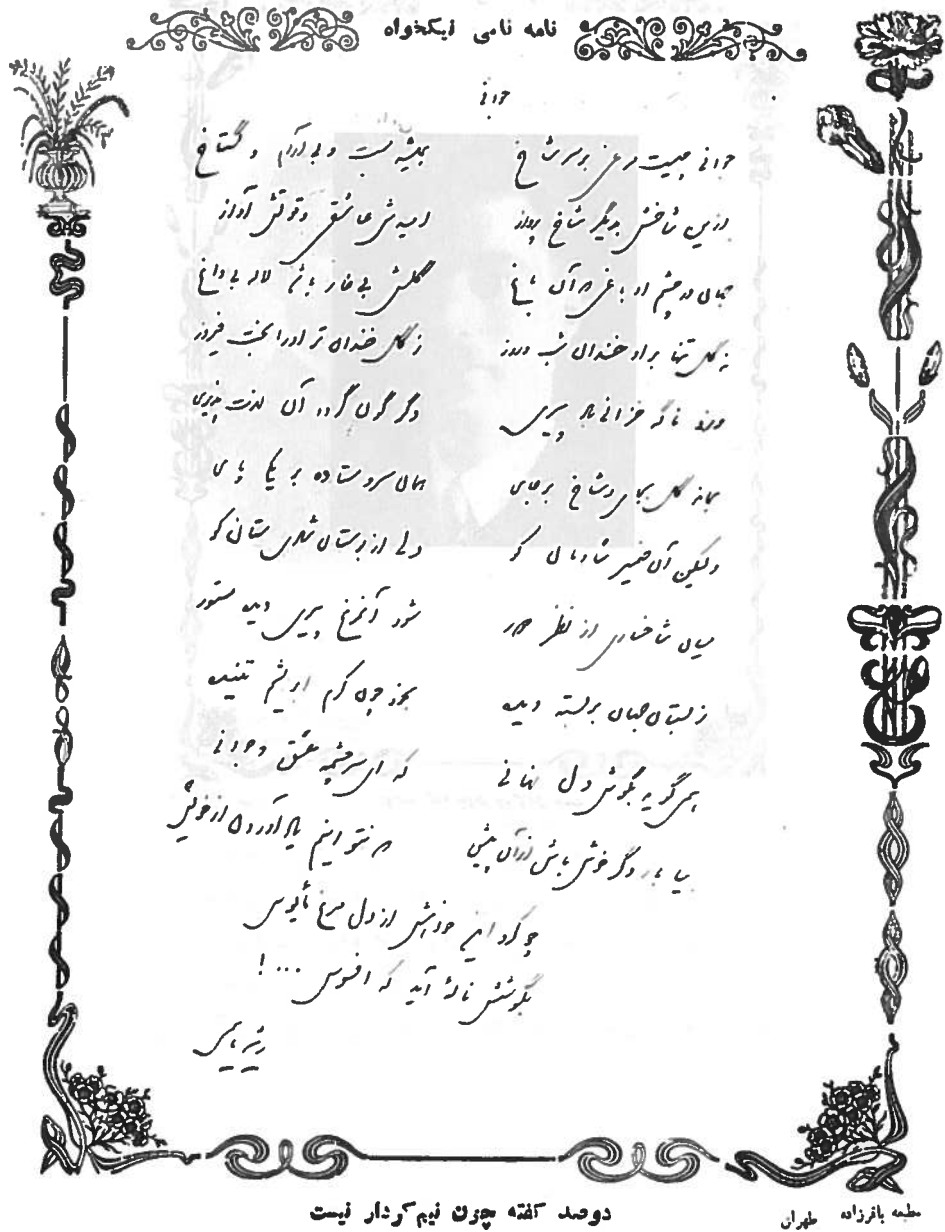 نامه نامی نیکخواه
جوانی
جوانی چیست مرغی بر سر شاخ همیشه مست و بی آرام و گستاخ
ازین شاخش بدیگر شاخ پرواز امیدش عاشق وقوتش آواز
جهان در چشم او باغی در آن باغ گلش بی خار باشد لاله بی داغ
نه گل تنها بر او خندان شب و روز ز گل خندان تر او را بخت فیروز
وزد ناگه خزانی بر پیری دگرگون گردد آن لذت پذیری
بماند گل بجای و شاخ برجای همان سرو ستاده بر یکی پای
ولیکن آن ضمیر شادمان کو دلی از بوستان شادی ستان کو
میان شاخساری از نظر دور شود آن مرغ پیری دیده مستور
ز بستان جهان بربسته دیده بخود چون کرم ابریشم تنیده
همی گوید بگوش دل نهانی که ای سرچشمه عشق و جوانی
بیا بار دگر خوش باش از آن پیش که نتوانیم یاد آوردن از خویش
چو کرد این خواهش از دل مرغ مأیوس
بگوشش ناله آید که افسوس ...!
دوصد گفته چون نیم کردار نیست
مطبعه باقرزاده طهران